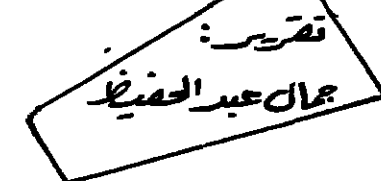 تقرير:
جمال عبد الحفيظ